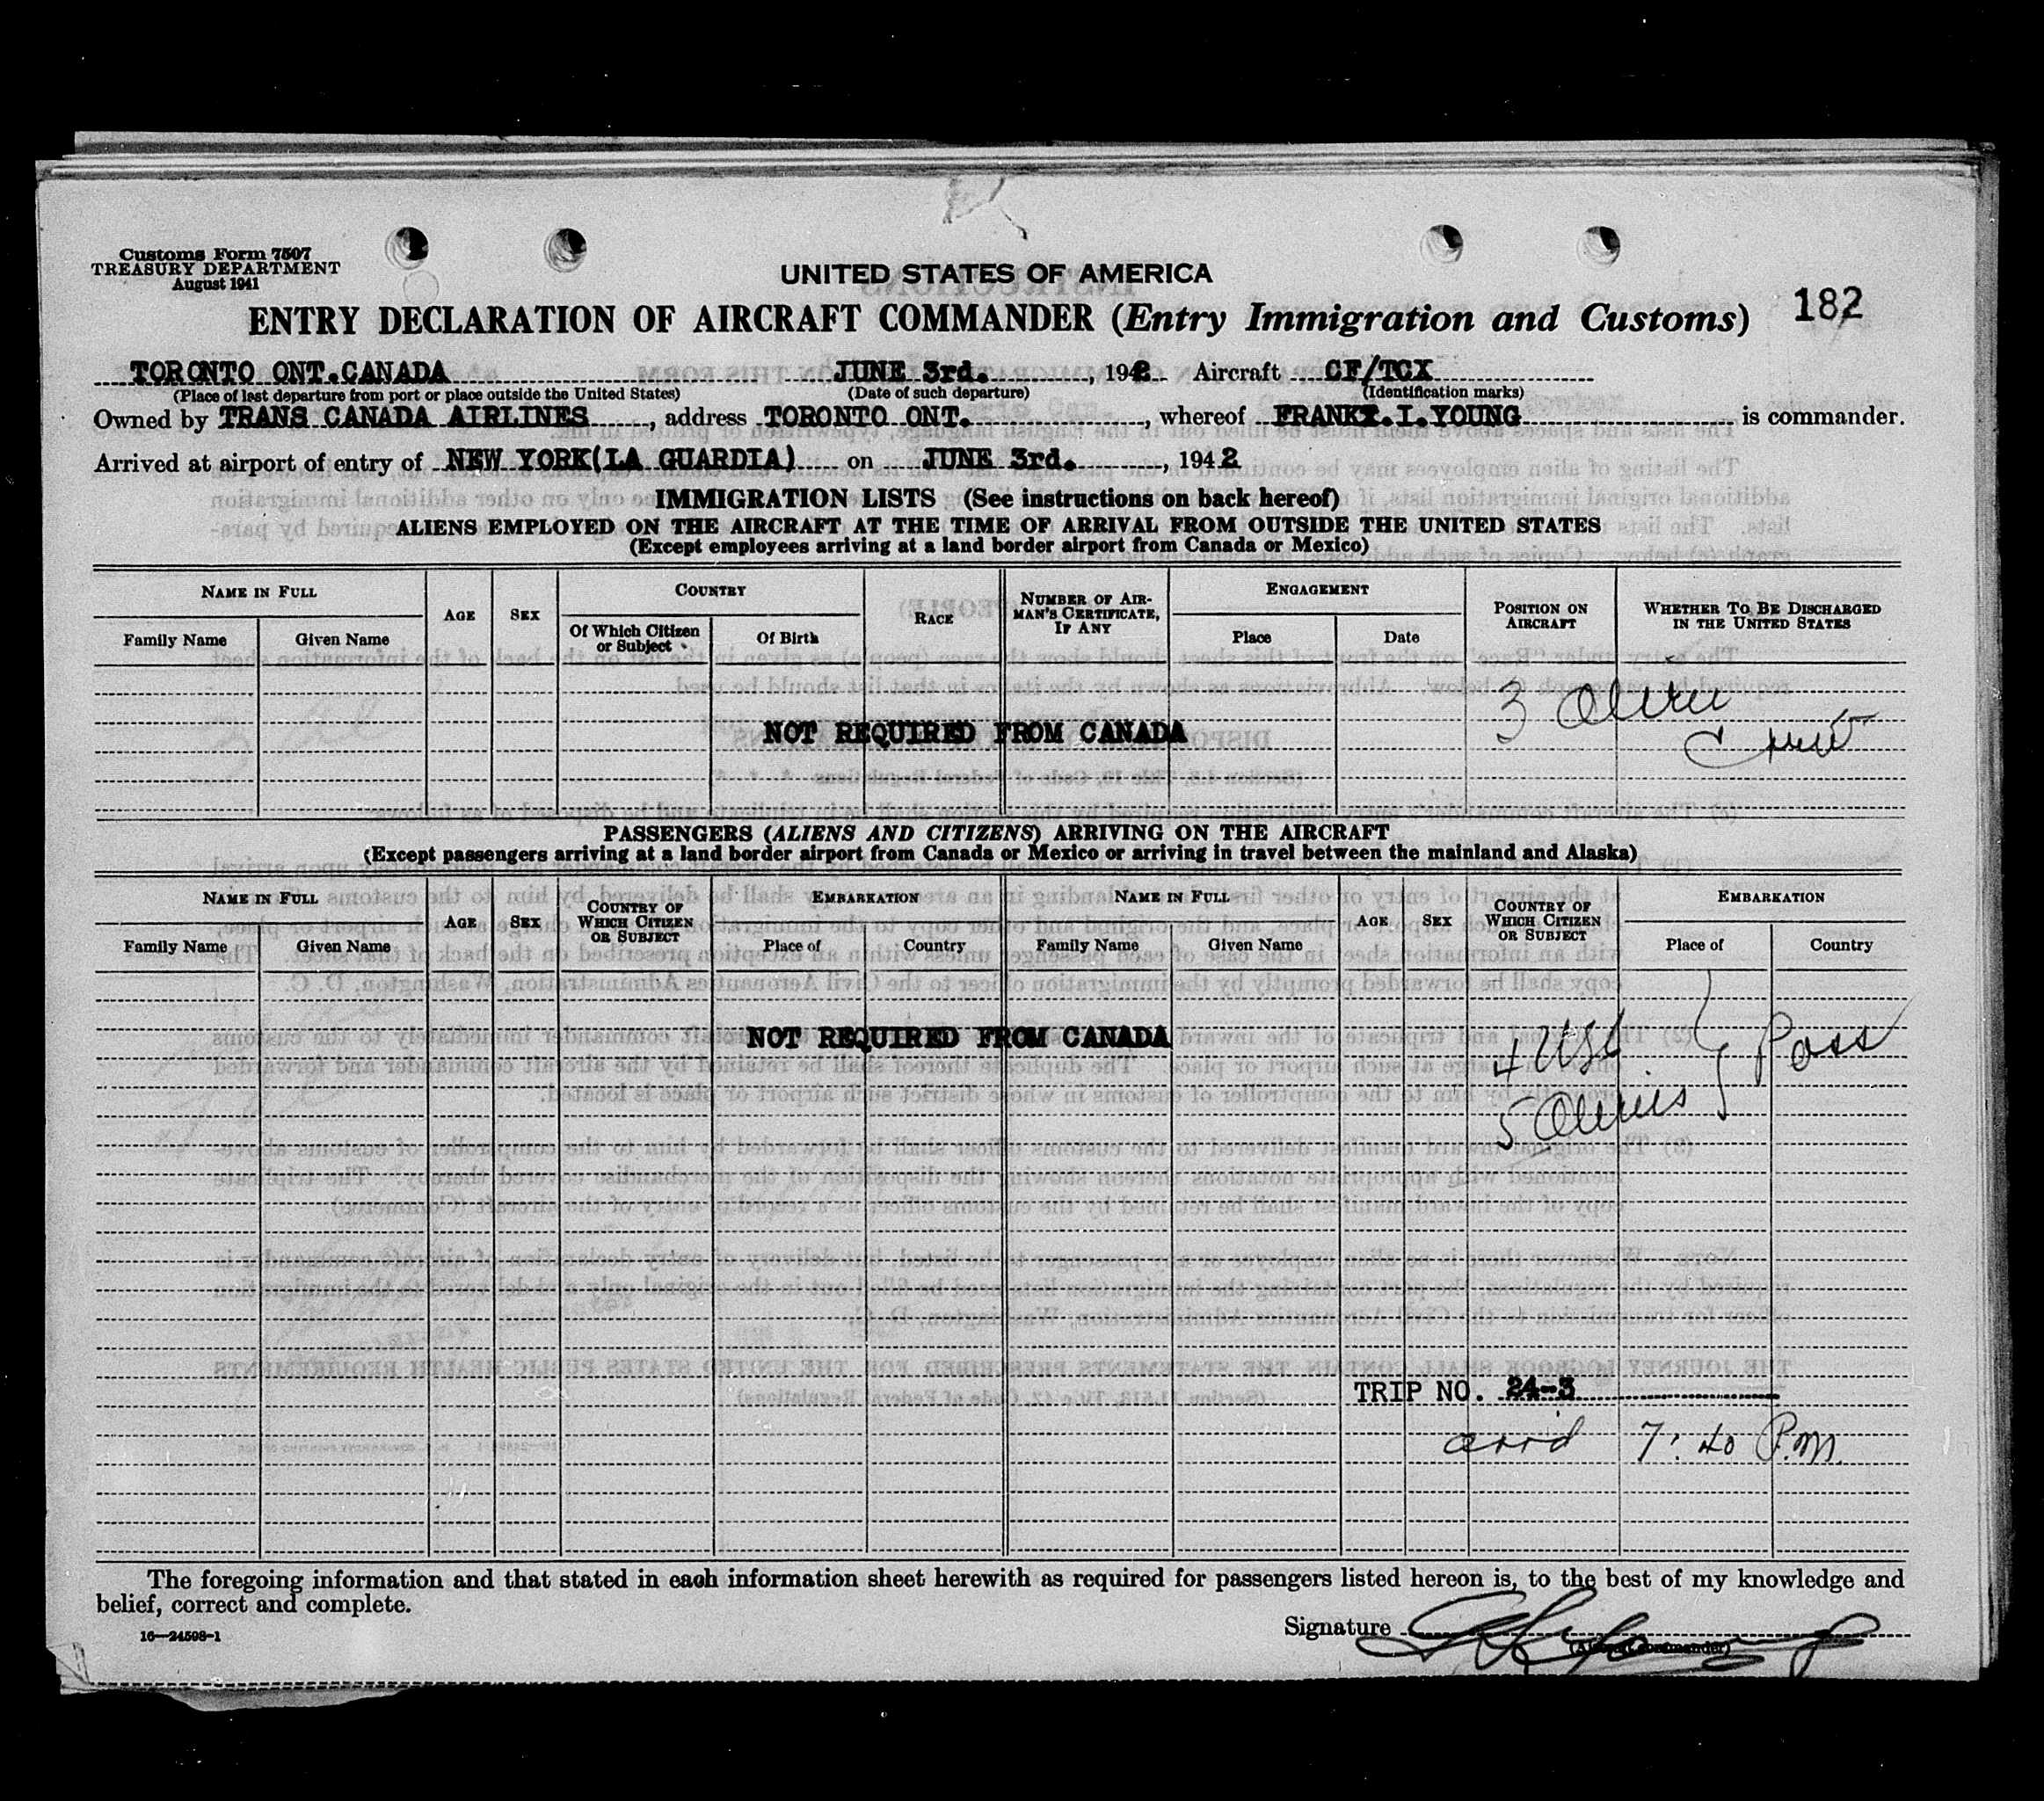 Customs Form 7507
TREASURY DEPARTMENT
August 1941
UNITED STATES OF AMERICA
ENTRY DECLARATION OF AIRCRAFT COMMANDER (Entry Immigration and Customs) 182
TORONTO ONT.CANADA JUNE 3rd. , 1942 Aircraft CF/TCX
(Place of last departure from port or place outside the United States) (Date of such departure) (Identification marks)
Owned by TRANS CANADA AIRLINES , address TORONTO ONT. , whereof FRANK I.YOUNG is commander.
Arrived at airport of entry of NEW YORK(LA GUARDIA) on JUNE 3rd. , 1942
IMMIGRATION LISTS (See instructions on back hereof)
ALIENS EMPLOYED ON THE AIRCRAFT AT THE TIME OF ARRIVAL FROM OUTSIDE THE UNITED STATES
(Except employees arriving at a land border airport from Canada or Mexico)
NAME IN FULL AGE SEX COUNTRY RACE NUMBER OF AIRMAN'S CERTIFICATE, IF ANY ENGAGEMENT POSITION ON AIRCRAFT WHETHER TO BE DISCHARGED IN THE UNITED STATES
Family Name Given Name Of Which Citizen or Subject Of Birth Place Date
3 Alien
Crew
NOT REQUIRED FROM CANADA
PASSENGERS (ALIENS AND CITIZENS) ARRIVING ON THE AIRCRAFT
(Except passengers arriving at a land border airport from Canada or Mexico or arriving in travel between the mainland and Alaska)
NAME IN FULL AGE SEX COUNTRY OF WHICH CITIZEN OR SUBJECT EMBARKATION NAME IN FULL AGE SEX COUNTRY OF WHICH CITIZEN OR SUBJECT EMBARKATION
Family Name Given Name Place of Country Family Name Given Name Place of Country
NOT REQUIRED FROM CANADA
4 USC } Pass
5 Aliens
TRIP NO. 24-3
arrd 7:40 P.M.
The foregoing information and that stated in each information sheet herewith as required for passengers listed hereon is, to the best of my knowledge and
belief, correct and complete.
Signature
(Aircraft commander)
16—24598-1